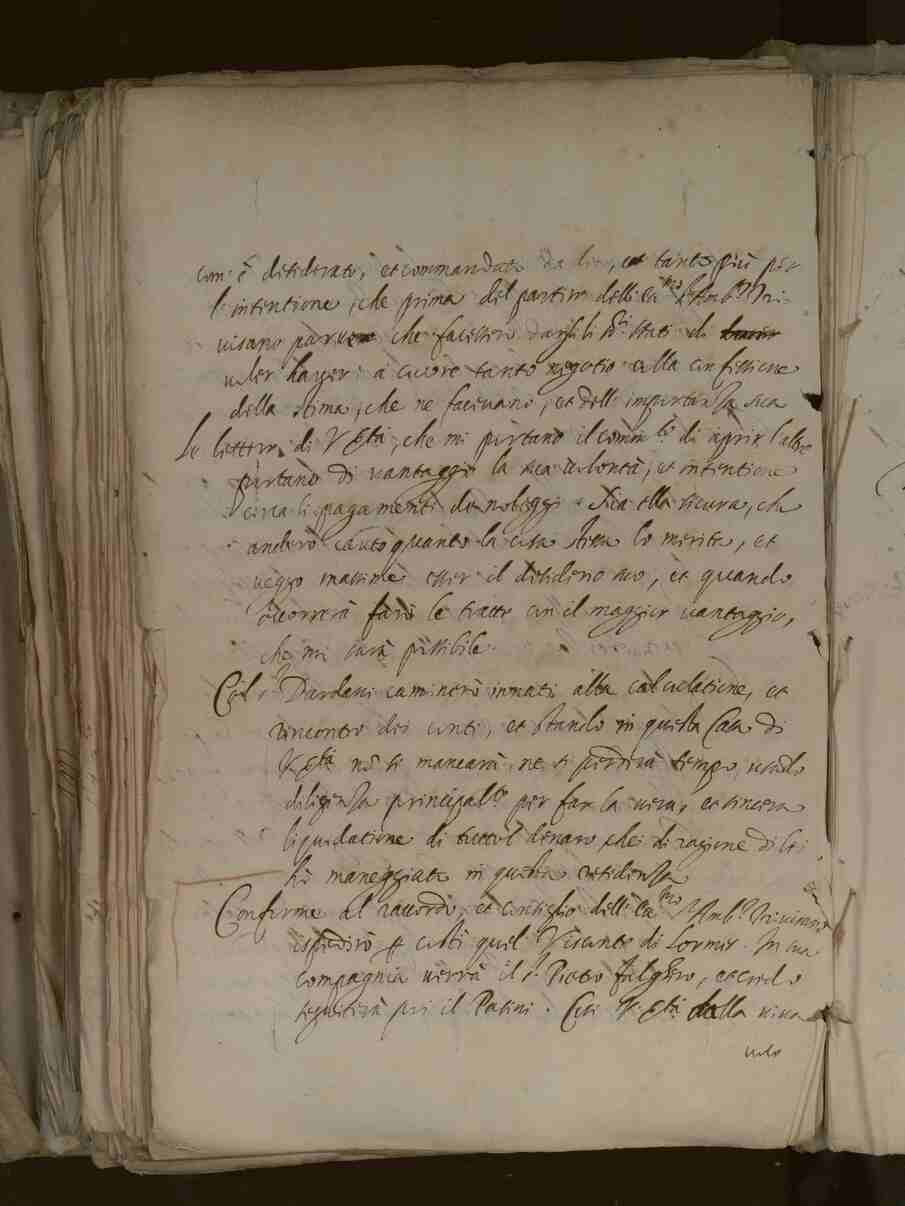 com'è desiderato, et commandato da lei, et tanto più per
l'intentione, che prima del partir dell'Ecc.mo S.r Amb.r Tri-
uisano paruero che facessero darsili SS.ri Stati di
uoler hauer' à cuore tanto negotio alla confessione
della stima, che ne faceuano, et dell'importanza sua
Le lettere di V. Ser.tà, che mi portano il comm.to di aprir l'altre
portano di uantaggio la sua uolontà, et intentione
circa li pagamenti de noleggi. Sia ella sicura, che
anderò cauto quanto la cosa stessa lo merita, et
ueggo massime esser il desiderio suo, et quando
occorrerà farò le tratte con il maggior uantaggio,
che mi sarà possibile.
Col S.r Dardani caminerò innanti alla calculatione, et
rincontro dei conti, et stando in questa Casa di
V. Ser.tà nõ si mancarà, ne si perderà tempo, usando
diligenza principal.te per far la uera, et sincera
liquidatione di tutto 'l denaro, che di ragione di lei
hà maneggiato in questa residenza
Conforme al raccordo, et consiglio dell'Ecc.mo S.r Amb.r Triuisano
ispedirò ꝑ costì quel Visconte di Lormes. In sua
compagnia uerrà il S.r Pietro
seguiterà poi il Pasini. Così V. Ser.tà della uiua